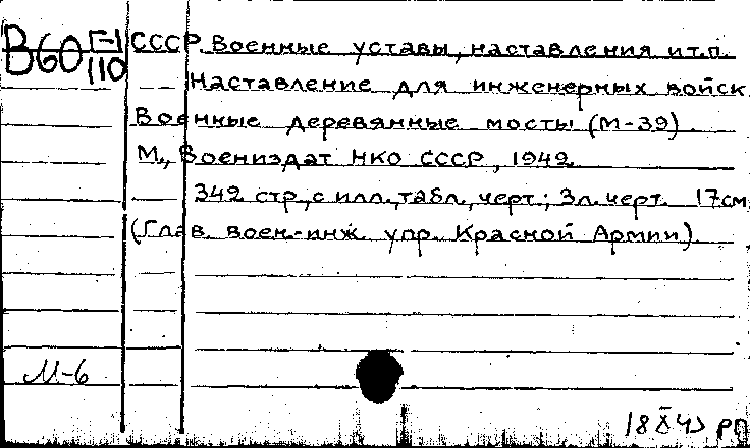 В60 Г-1 СССР. Военные уставы, наставления и т.п.
110
Наставление для инженерных войск
Военные деревянные мосты (М-39).
М., Воениздат НКО СССР, 1942.
342 стр., с илл., табл., черт.; 3 л. черт. 17 см
(Глав. воен.-инж. упр. Красной Армии).
М-6
18 X 43